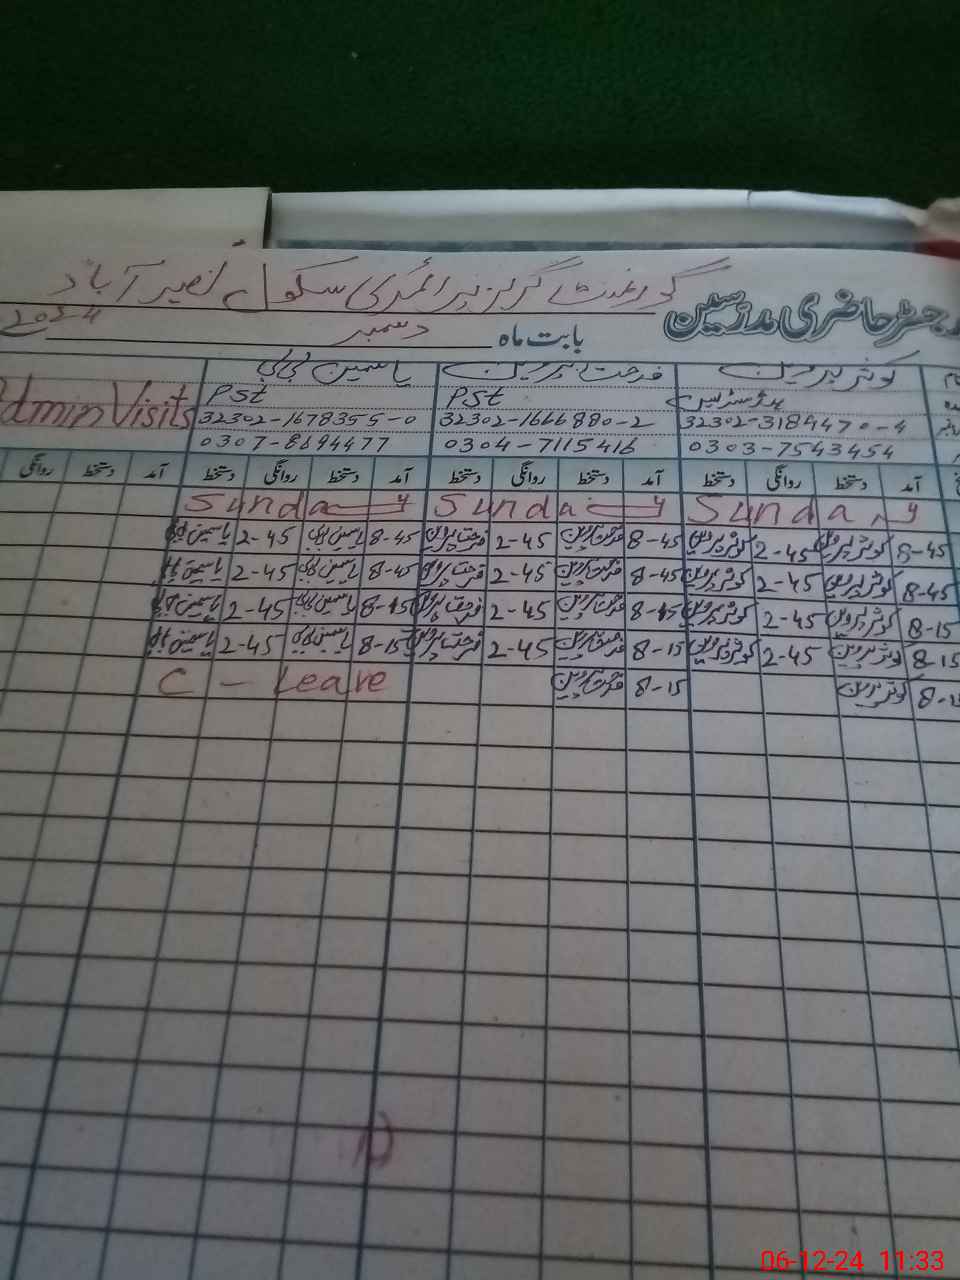 گورنمنٹ گرلز پرائمری سکول نصیر آباد
رجسٹر حاضری مدرسین
بابت ماہ دسمبر 2024
کوثر پروین فرحت پروین یاسمین بی بی
ہیڈ مسٹریس PST PST Admin Visits
32302-3184470-4 32302-1666880-2 32302-1678355-0
0303-7543454 0304-7115416 0307-8694477
آمد دستخط روانگی دستخط آمد دستخط روانگی دستخط آمد دستخط روانگی دستخط آمد دستخط روانگی
Sunday Sunday Sunday
8-45 کوثر پروین 2-45 کوثر پروین 8-45 فرحت پروین 2-45 فرحت پروین 8-45 یاسمین بی بی 2-45 یاسمین بی بی
8-45 کوثر پروین 2-45 کوثر پروین 8-45 فرحت پروین 2-45 فرحت پروین 8-45 یاسمین بی بی 2-45 یاسمین بی بی
8-15 کوثر پروین 2-45 کوثر پروین 8-15 فرحت پروین 2-45 فرحت پروین 8-15 یاسمین بی بی 2-45 یاسمین بی بی
8-15 کوثر پروین 2-45 کوثر پروین 8-15 فرحت پروین 2-45 فرحت پروین 8-15 یاسمین بی بی 2-45 یاسمین بی بی
کوثر پروین 8-15 فرحت پروین C - Leave
06-12-24 11:33